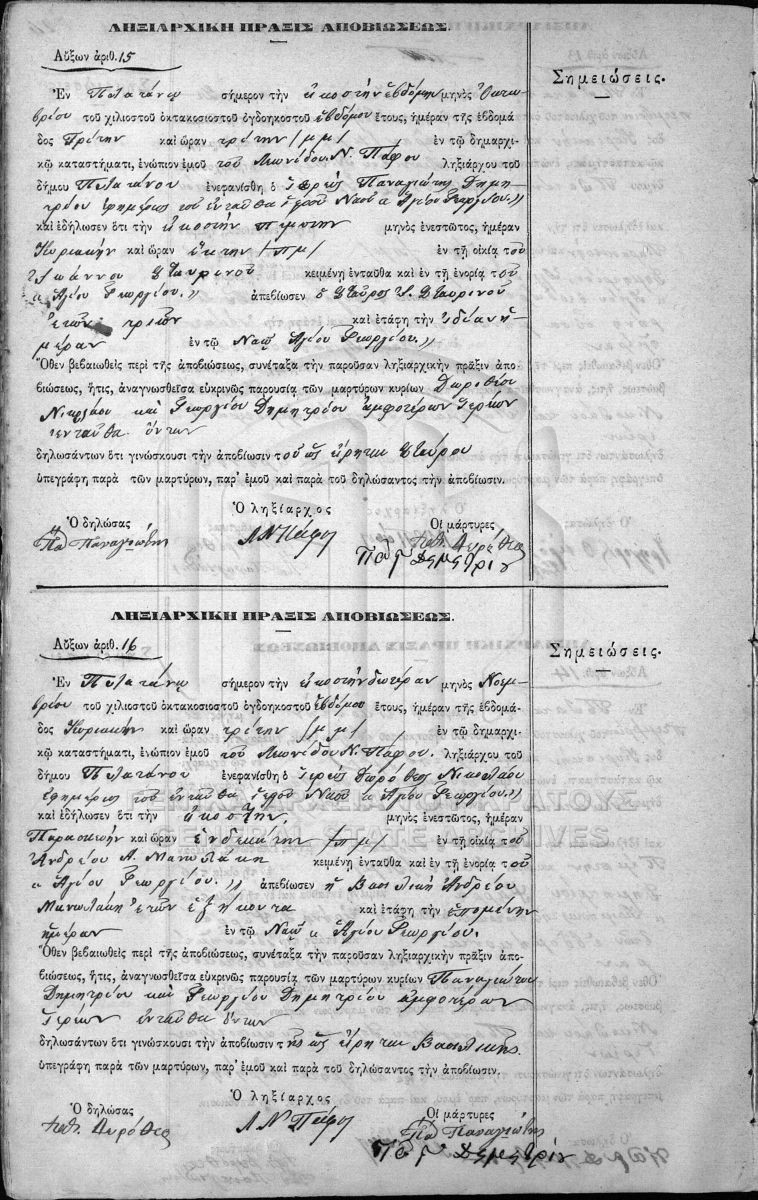 ΛΗΞΙΑΡΧΙΚΗ ΠΡΑΞΙΣ ΑΠΟΒΙΩΣΕΩΣ.
Αὔξων ἀριθ. 15
Σημειώσεις.
Ἐν Πλατάνῳ σήμερον τὴν εἰκοστὴν ἑβδόμην μηνὸς Ὀκτω-
βρίου τοῦ χιλιοστοῦ ὀκτακοσιοστοῦ ὀγδοηκοστοῦ ἑβδόμου ἔτους, ἡμέραν τῆς ἑβδομά-
δος Τρίτην καὶ ὥραν τρίτην /μμ/ ἐν τῷ δημαρχι-
κῷ καταστήματι, ἐνώπιον ἐμοῦ τοῦ Λεωνίδου Ν. Πάφου ληξιάρχου τοῦ
δήμου Πλατάνου ἐνεφανίσθη ὁ ἱερεὺς Παναγιώτης Δημη-
τρίου ἐφημέριος τοῦ ἐνταῦθα ἱεροῦ Ναοῦ «Ἁγίου Γεωργίου.»
καὶ ἐδήλωσεν ὅτι τὴν εἰκοστὴν πέμπτην μηνὸς ἐνεστῶτος, ἡμέραν
Κυριακὴν καὶ ὥραν ἕκτην /πμ/ ἐν τῇ οἰκίᾳ τοῦ
Ἰωάννου Σταυρινοῦ κειμένῃ ἐνταῦθα καὶ ἐν τῇ ἐνορίᾳ τοῦ
«Ἁγίου Γεωργίου.» ἀπεβίωσεν ὁ Σταῦρος Ι. Σταυρινοῦ
ἐτῶν τριῶν καὶ ἐτάφη τὴν ἰδίαν ἡ-
μέραν ἐν τῷ Ναῷ Ἁγίου Γεωργίου.»
Ὅθεν βεβαιωθεὶς περὶ τῆς ἀποβιώσεως, συνέταξα τὴν παροῦσαν ληξιαρχικὴν πρᾶξιν ἀπο-
βιώσεως, ἥτις, ἀναγνωσθεῖσα εὐκρινῶς παρουσίᾳ τῶν μαρτύρων κυρίων Δωροθέου
Νικολάου καὶ Γεωργίου Δημητρίου ἀμφοτέρων ἱερέων
ἐνταῦθα ὄντων
δηλωσάντων ὅτι γινώσκουσι τὴν ἀποβίωσιν τοῦ ὡς εἴρηται Σταύρου
ὑπεγράφη παρὰ τῶν μαρτύρων, παρ' ἐμοῦ καὶ παρὰ τοῦ δηλώσαντος τὴν ἀποβίωσιν.
Ὁ δηλώσας
Ὁ ληξίαρχος
Οἱ μάρτυρες
Παναγιώτης
Λ Ν Πάφος
ΛΗΞΙΑΡΧΙΚΗ ΠΡΑΞΙΣ ΑΠΟΒΙΩΣΕΩΣ.
Αὔξων ἀριθ. 16
Σημειώσεις.
Ἐν Πλατάνῳ σήμερον τὴν εἰκοστὴν δευτέραν μηνὸς Νοεμ-
βρίου τοῦ χιλιοστοῦ ὀκτακοσιοστοῦ ὀγδοηκοστοῦ ἑβδόμου ἔτους, ἡμέραν τῆς ἑβδομά-
δος Κυριακὴν καὶ ὥραν τρίτην /μμ/ ἐν τῷ δημαρχι-
κῷ καταστήματι, ἐνώπιον ἐμοῦ τοῦ Λεωνίδου Ν. Πάφου. ληξιάρχου τοῦ
δήμου Πλατάνου ἐνεφανίσθη ὁ ἱερεὺς Δωρόθεος Νικολάου
ἐφημέριος τοῦ ἐνταῦθα ἱεροῦ Ναοῦ «Ἁγίου Γεωργίου.»
καὶ ἐδήλωσεν ὅτι τὴν εἰκοστὴν, μηνὸς ἐνεστῶτος, ἡμέραν
Παρασκευὴν καὶ ὥραν ἑνδεκάτην /πμ/ ἐν τῇ οἰκίᾳ τοῦ
Ἀνδρέου Α. Μανωλάκη κειμένῃ ἐνταῦθα καὶ ἐν τῇ ἐνορίᾳ τοῦ
«Ἁγίου Γεωργίου.» ἀπεβίωσεν ἡ Βασιλικὴ Ἀνδρέου
Μανωλάκη ἐτῶν ἑξήκοντα καὶ ἐτάφη τὴν ἑπομένην
ἡμέραν ἐν τῷ Ναῷ «Ἁγίου Γεωργίου.
Ὅθεν βεβαιωθεὶς περὶ τῆς ἀποβιώσεως, συνέταξα τὴν παροῦσαν ληξιαρχικὴν πρᾶξιν ἀπο-
βιώσεως, ἥτις, ἀναγνωσθεῖσα εὐκρινῶς παρουσίᾳ τῶν μαρτύρων κυρίων Παναγιώτου
Δημητρίου καὶ Γεωργίου Δημητρίου ἀμφοτέρων
ἱερέων ἐνταῦθα ὄντων
δηλωσάντων ὅτι γινώσκουσι τὴν ἀποβίωσιν τῆς ὡς εἴρηται Βασιλικῆς
ὑπεγράφη παρὰ τῶν μαρτύρων, παρ' ἐμοῦ καὶ παρὰ τοῦ δηλώσαντος τὴν ἀποβίωσιν.
Ὁ δηλώσας
Ὁ ληξίαρχος
Οἱ μάρτυρες
Λ Ν Πάφος
Παναγιώτης